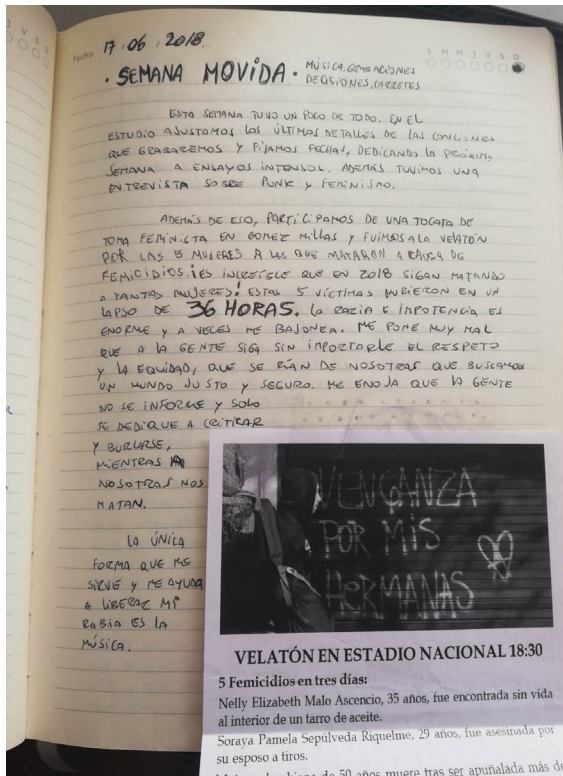 Fecha 17/06/2018.
L M M J V S D
· SEMANA MOVIDA · MÚSICA, GRABACIONES
DECISIONES, CARRETES
ESTA SEMANA TUVO UN POCO DE TODO. EN EL
ESTUDIO AJUSTAMOS LOS ÚLTIMOS DETALLES DE LAS CANCIONES
QUE GRABAREMOS Y FIJAMOS FECHAS, DEDICANDO LA PRÓXIMA
SEMANA A ENSAYOS INTENSOS. ADEMÁS TUVIMOS UNA
ENTREVISTA SOBRE PUNK Y FEMINISMO.
ADEMÁS DE ESO, PARTICIPAMOS DE UNA TOCATA DE
TOMA FEMINISTA EN GOMEZ MILLAS Y FUIMOS A LA VELATÓN
POR LAS 5 MUJERES A LAS QUE MATARON A CAUSA DE
FEMICIDIOS. ¡ES INCREÍBLE QUE EN 2018 SIGAN MATANDO
A TANTAS MUJERES! ESTAS 5 VÍCTIMAS MURIERON EN UN
LAPSO DE 36 HORAS. LA RABIA E IMPOTENCIA ES
ENORME Y A VECES ME BAJONEA. ME PONE MUY MAL
QUE A LA GENTE SIGA SIN IMPORTARLE EL RESPETO
Y LA EQUIDAD, QUE SE RÍAN DE NOSOTRAS QUE BUSCAMOS
UN MUNDO JUSTO Y SEGURO. ME ENOJA QUE LA GENTE
NO SE INFORME Y SOLO
SE DEDIQUE A CRITICAR
Y BURLARSE,
MIENTRAS
NOSOTRAS NOS
MATAN.
LA ÚNICA
FORMA QUE ME
SIRVE Y ME AYUDA
A LIBERAR MI
RABIA ES LA
MÚSICA.
VENGANZA
POR MIS
HERMANAS
VELATÓN EN ESTADIO NACIONAL 18:30
5 Femicidios en tres días:
Nelly Elizabeth Malo Ascencio, 35 años, fue encontrada sin vida
al interior de un tarro de aceite.
Soraya Pamela Sepúlveda Riquelme, 29 años, fue asesinada por
su esposo a tiros.
de 50 años muere tras ser apuñalada más de